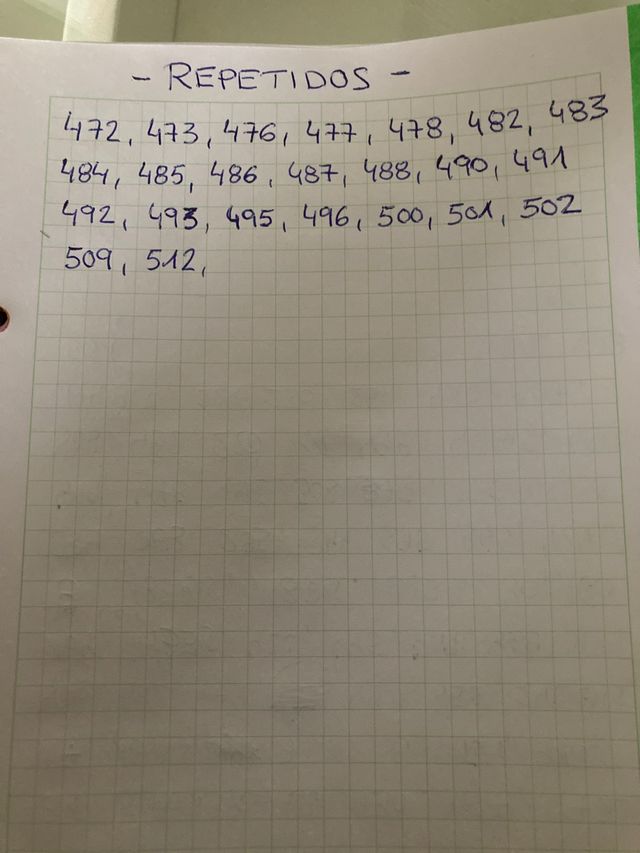 - REPETIDOS -
472, 473, 476, 477, 478, 482, 483
484, 485, 486, 487, 488, 490, 491
492, 493, 495, 496, 500, 501, 502
509, 512,